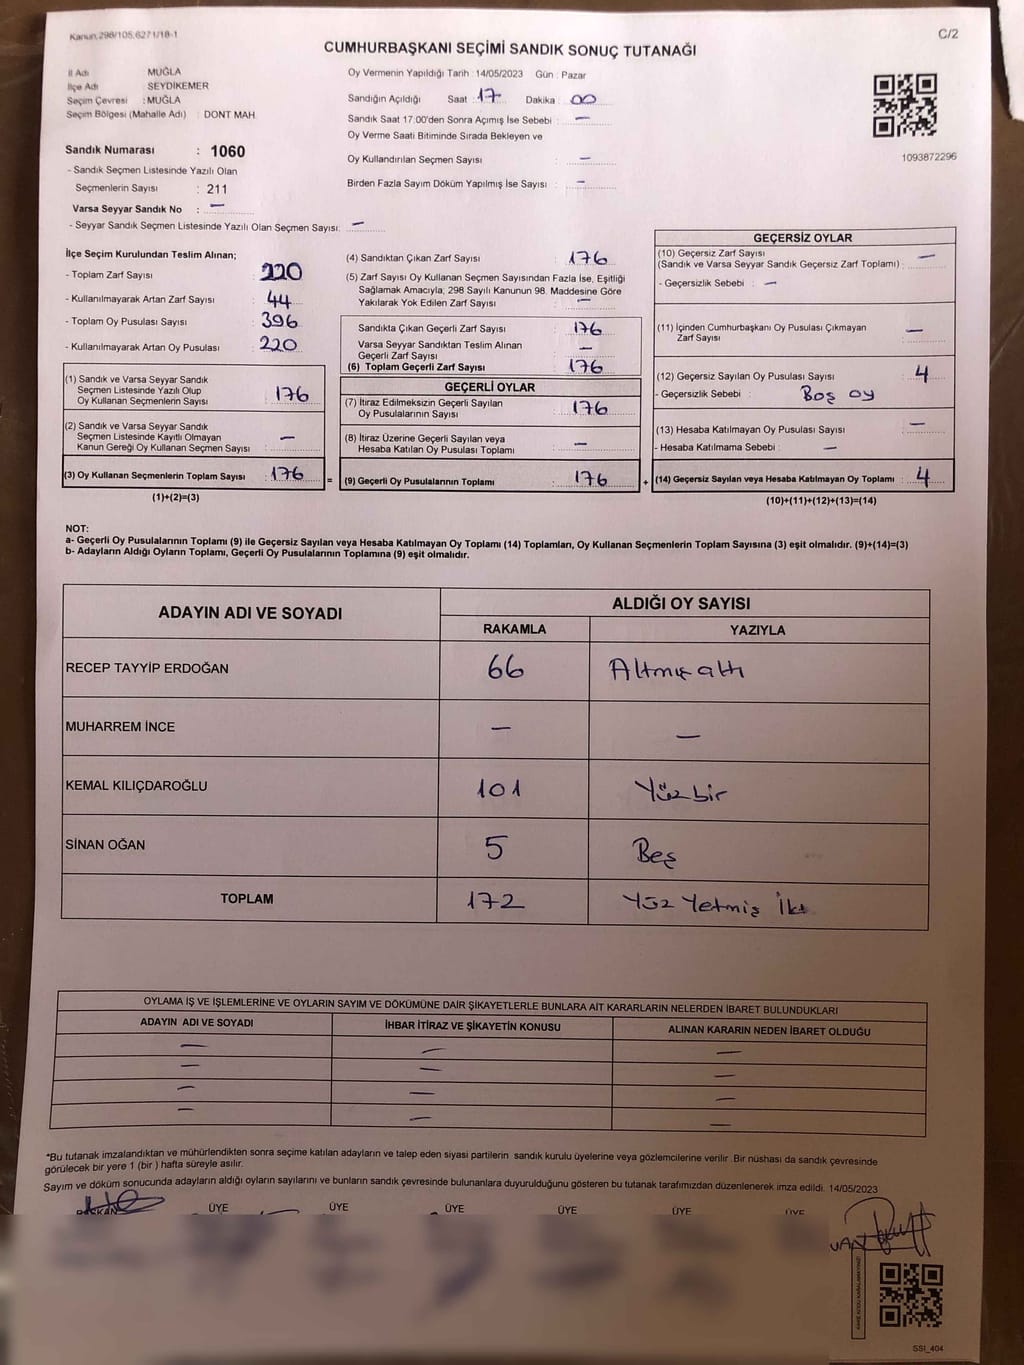 Kanun.298/105,6271/18-1
C/2
CUMHURBAŞKANI SEÇİMİ SANDIK SONUÇ TUTANAĞI
İl Adı MUĞLA
İlçe Adı SEYDİKEMER
Seçim Çevresi : MUĞLA
Seçim Bölgesi (Mahalle Adı) : DONT MAH.
Oy Vermenin Yapıldığı Tarih : 14/05/2023 Gün : Pazar
Sandığın Açıldığı Saat : 17 Dakika : 00
Sandık Saat 17.00'den Sonra Açımış İse Sebebi : —
Oy Verme Saati Bitiminde Sırada Bekleyen ve
Oy Kullandırılan Seçmen Sayısı : —
Birden Fazla Sayım Döküm Yapılmış İse Sayısı : —
1093872296
Sandık Numarası : 1060
- Sandık Seçmen Listesinde Yazılı Olan
Seçmenlerin Sayısı : 211
Varsa Seyyar Sandık No : —
- Seyyar Sandık Seçmen Listesinde Yazılı Olan Seçmen Sayısı: —
İlçe Seçim Kurulundan Teslim Alınan;
- Toplam Zarf Sayısı : 220
- Kullanılmayarak Artan Zarf Sayısı : 44
- Toplam Oy Pusulası Sayısı : 396
- Kullanılmayarak Artan Oy Pusulası : 220
(1) Sandık ve Varsa Seyyar Sandık
Seçmen Listesinde Yazılı Olup
Oy Kullanan Seçmenlerin Sayısı : 176
(2) Sandık ve Varsa Seyyar Sandık
Seçmen Listesinde Kayıtlı Olmayan
Kanun Gereği Oy Kullanan Seçmen Sayısı : —
(3) Oy Kullanan Seçmenlerin Toplam Sayısı : 176
(1)+(2)=(3)
=
(4) Sandıktan Çıkan Zarf Sayısı : 176
(5) Zarf Sayısı Oy Kullanan Seçmen Sayısından Fazla İse, Eşitliği
Sağlamak Amacıyla; 298 Sayılı Kanunun 98. Maddesine Göre
Yakılarak Yok Edilen Zarf Sayısı : —
Sandıkta Çıkan Geçerli Zarf Sayısı : 176
Varsa Seyyar Sandıktan Teslim Alınan
Geçerli Zarf Sayısı : —
(6) Toplam Geçerli Zarf Sayısı : 176
GEÇERLİ OYLAR
(7) İtiraz Edilmeksizin Geçerli Sayılan
Oy Pusulalarının Sayısı : 176
(8) İtiraz Üzerine Geçerli Sayılan veya
Hesaba Katılan Oy Pusulası Toplamı : —
(9) Geçerli Oy Pusulalarının Toplamı : 176
+
GEÇERSİZ OYLAR
(10) Geçersiz Zarf Sayısı
(Sandık ve Varsa Seyyar Sandık Geçersiz Zarf Toplamı) : —
- Geçersizlik Sebebi : —
(11) İçinden Cumhurbaşkanı Oy Pusulası Çıkmayan
Zarf Sayısı : —
(12) Geçersiz Sayılan Oy Pusulası Sayısı : 4
- Geçersizlik Sebebi : Boş oy
(13) Hesaba Katılmayan Oy Pusulası Sayısı : —
- Hesaba Katılmama Sebebi : —
(14) Geçersiz Sayılan veya Hesaba Katılmayan Oy Toplamı : 4
(10)+(11)+(12)+(13)=(14)
NOT:
a- Geçerli Oy Pusulalarının Toplamı (9) ile Geçersiz Sayılan veya Hesaba Katılmayan Oy Toplamı (14) Toplamları, Oy Kullanan Seçmenlerin Toplam Sayısına (3) eşit olmalıdır. (9)+(14)=(3)
b- Adayların Aldığı Oyların Toplamı, Geçerli Oy Pusulalarının Toplamına (9) eşit olmalıdır.
ADAYIN ADI VE SOYADI ALDIĞI OY SAYISI
RAKAMLA YAZIYLA
RECEP TAYYİP ERDOĞAN 66 Altmış altı
MUHARREM İNCE — —
KEMAL KILIÇDAROĞLU 101 Yüz bir
SİNAN OĞAN 5 Beş
TOPLAM 172 Yüz Yetmiş İki
OYLAMA İŞ VE İŞLEMLERİNE VE OYLARIN SAYIM VE DÖKÜMÜNE DAİR ŞİKAYETLERLE BUNLARA AİT KARARLARIN NELERDEN İBARET BULUNDUKLARI
ADAYIN ADI VE SOYADI İHBAR İTİRAZ VE ŞİKAYETİN KONUSU ALINAN KARARIN NEDEN İBARET OLDUĞU
— — —
— — —
— — —
— — —
*Bu tutanak imzalandıktan ve mühürlendikten sonra seçime katılan adayların ve talep eden siyasi partilerin sandık kurulu üyelerine veya gözlemcilerine verilir .Bir nüshası da sandık çevresinde
görülecek bir yere 1 (bir ) hafta süreyle asılır.
Sayım ve döküm sonucunda adayların aldığı oyların sayılarını ve bunların sandık çevresinde bulunanlara duyurulduğunu gösteren bu tutanak tarafımızdan düzenlenerek imza edildi. 14/05/2023
BAŞKAN ÜYE ÜYE ÜYE ÜYE ÜYE ÜYE
SSİ_404